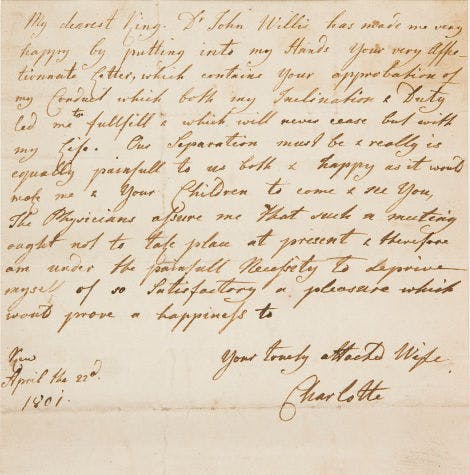 My dearest King. Dr John Willis has made me very
happy by putting into my Hands Your very Affec-
tionnate Letter, which contains Your approbation of
my Conduct which both my Inclination & Duty
led me to fullfill & which will never cease but with
my Life. Our Separation must be & really is
equally painfull to us both & happy as it would
make me & Your Children to come & see You,
The Physicians assure me That such a meeting
ought not to take place at present & therefore
am under the painfull Necessity to deprive
myself of so Satisfactory a pleasure which
would prove a happiness to
Your truely attached Wife
Charlotte
Kew
April the 22d.
1801.